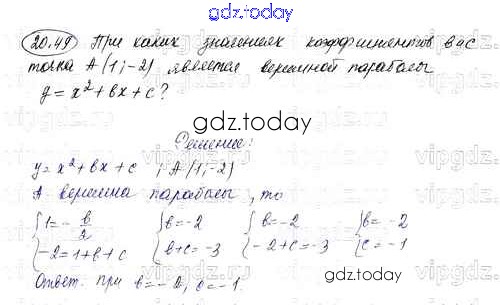 gdz.today
20.49 При каких значениях коэффициентов в и с
точка A (1; -2) является вершиной параболы
y = x² + bx + c?
gdz.today
Решение:
y = x² + bx + c ; A (1; -2)
A вершина параболы, то
{1 = - b/2 {b = -2 {b = -2 {b = -2
{-2 = 1 + b + c {b + c = -3 {-2 + c = -3 {c = -1
Ответ: при b = -2, c = -1.
gdz.today